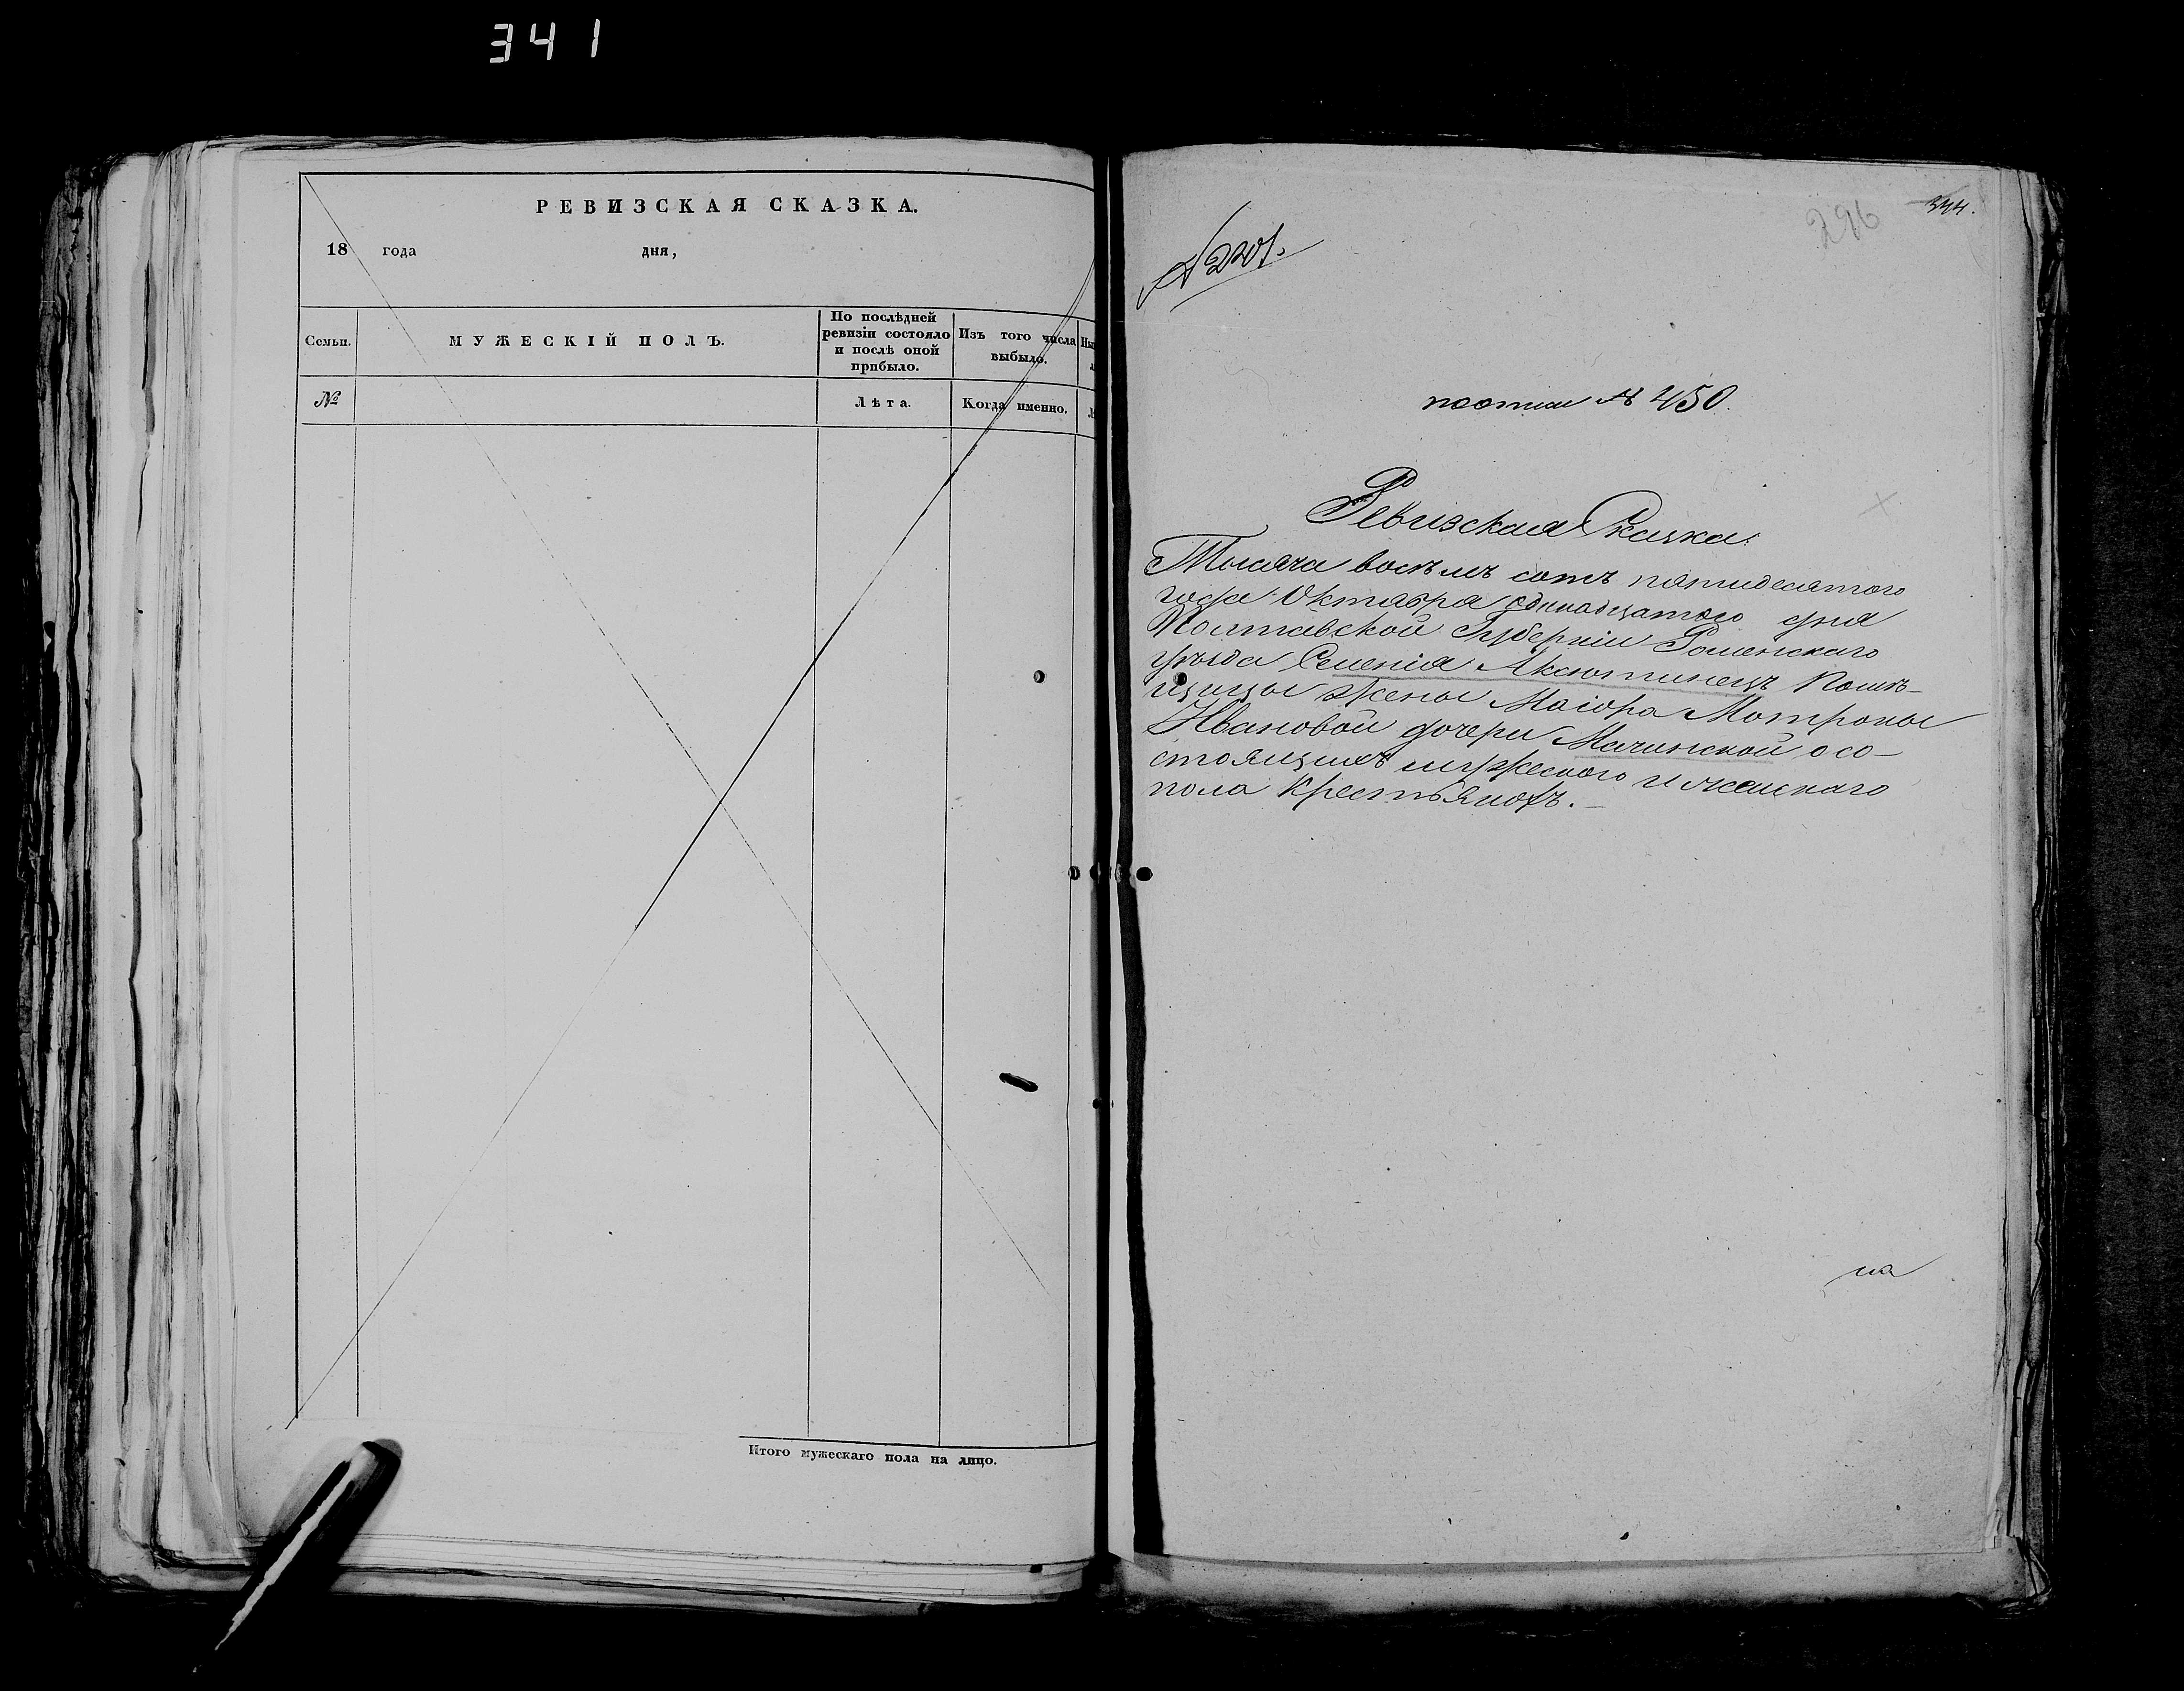 341
РЕВИЗСКАЯ СКАЗКА.
18 года дня,
Семьи.
МУЖЕСКІЙ ПОЛЪ.
По послѣдней
ревизіи состояло
и послѣ оной
прибыло.
Изъ того числа
выбыло.
№
Лѣта.
Когда именно.
Итого мужескаго пола на лицо.
296
344.
№ 220.
№ 450.
Ревизская Сказка.
Тысяча восъмъ сотъ пятидесятого
года Октября одинадцатого дня
Полтавской Губерніи Роменскаго
уѣзда Селенія Аксютинецъ Помѣ-
щицы жены Маіора Мотроны
Ивановой дочери Мачинской о со-
стоящихъ мужеского и женскаго
пола крестьянехъ.-
на